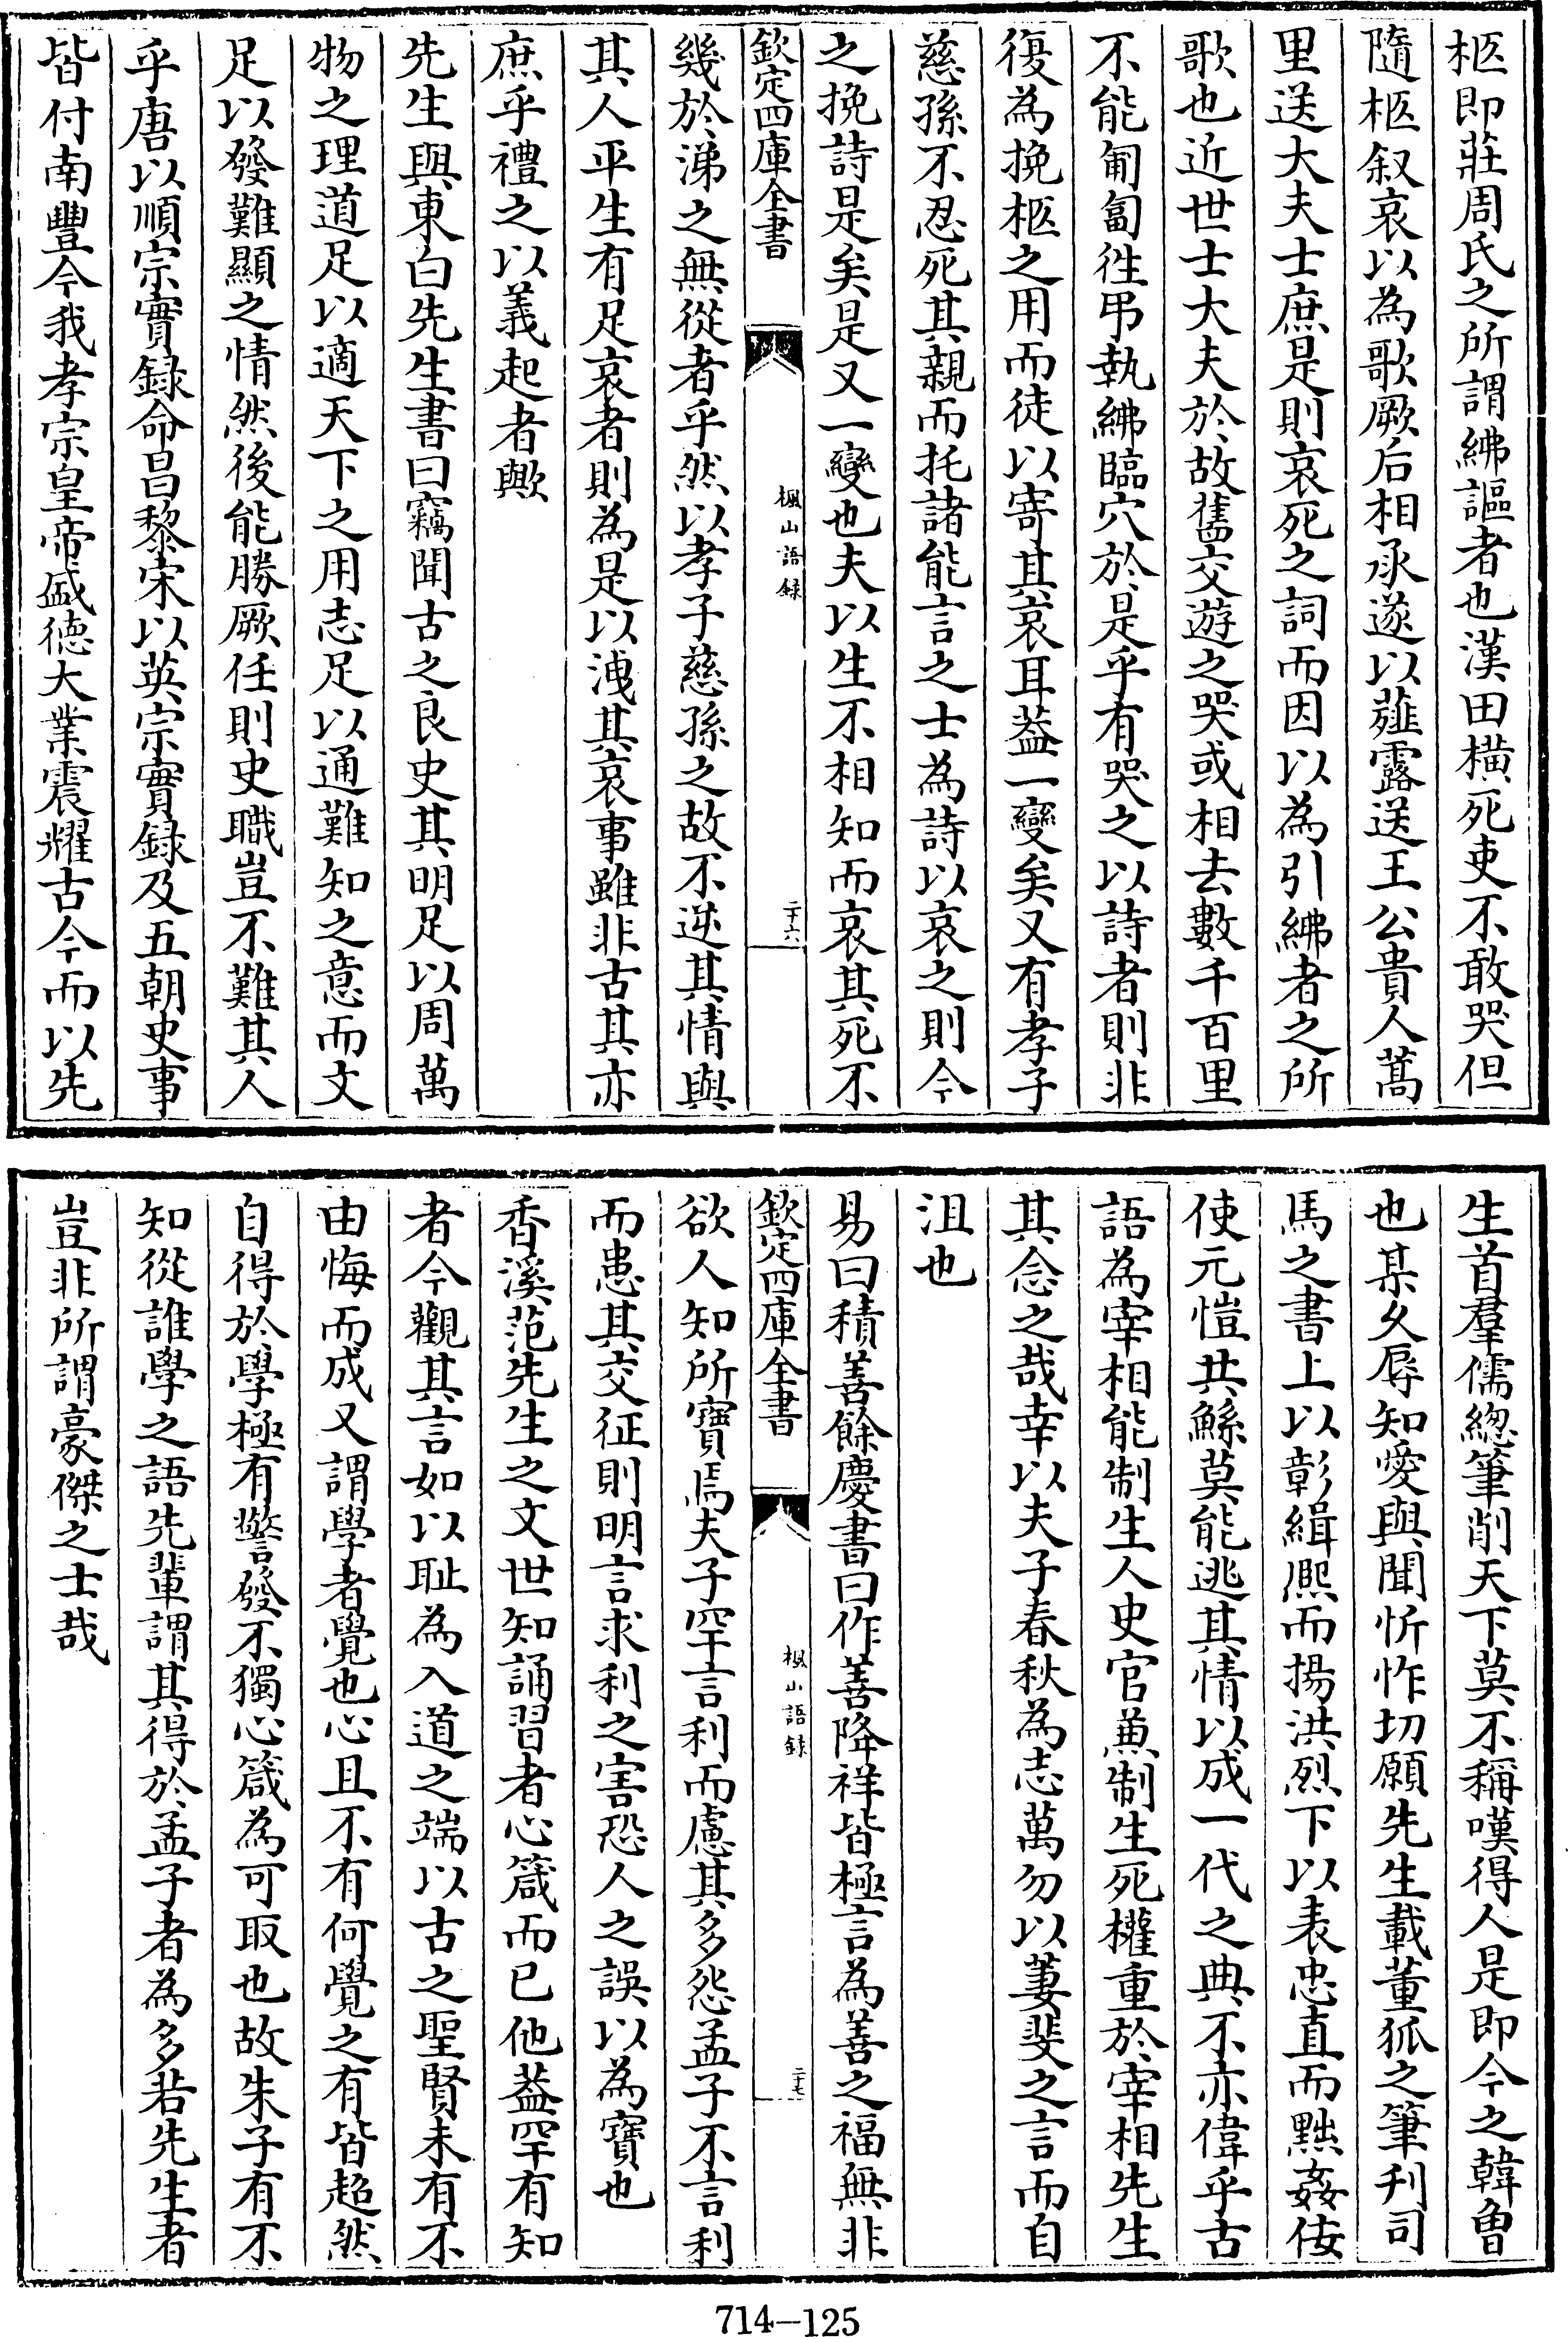 柩即莊周氏之所謂紼謳者也漢田橫死吏不敢哭但
隨柩叙哀以為歌厥后相承遂以薤露送王公貴人蒿
里送大夫士庶是則哀死之詞而因以為引紼者之所
歌也近世士大夫於故舊交遊之哭或相去數千百里
不能匍匐徃弔執紼臨穴於是乎有哭之以詩者則非
復為挽柩之用而徒以寄其哀耳葢一變矣又有孝子
慈孫不忍死其親而托諸能言之士為詩以哀之則今
之挽詩是矣是又一變也夫以生不相知而哀其死不
欽定四庫全書
楓山語録
二十六
幾於涕之無從者乎然以孝子慈孫之故不逆其情與
其人平生有足哀者則為是以洩其哀事雖非古其亦
庶乎禮之以義起者歟
先生與東白先生書曰竊聞古之良史其明足以周萬
物之理道足以適天下之用志足以通難知之意而文
足以發難顯之情然後能勝厥任則史職豈不難其人
乎唐以順宗實録命昌黎宋以英宗實録及五朝史事
皆付南豐今我孝宗皇帝盛徳大業震耀古今而以先
生首羣儒總筆削天下莫不稱嘆得人是即今之韓曾
也某久辱知愛與聞忻怍切願先生載董狐之筆刋司
馬之書上以彰緝熈而揚洪烈下以表忠直而黜姦佞
使元愷共鯀莫能逃其情以成一代之典不亦偉乎古
語為宰相能制生人史官兼制生死權重於宰相先生
其念之哉幸以夫子春秋為志萬勿以萋斐之言而自
沮也
易曰積善餘慶書曰作善降祥皆極言為善之福無非
欽定四庫全書
楓山語録
二十七
欲人知所寶焉夫子罕言利而慮其多怨孟子不言利
而患其交征則明言求利之害恐人之誤以為寶也
香溪范先生之文世知誦習者心箴而已他葢罕有知
者今觀其言如以耻為入道之端以古之聖賢未有不
由悔而成又謂學者覺也心且不有何覺之有皆超然
自得於學極有警發不獨心箴為可取也故朱子有不
知從誰學之語先輩謂其得於孟子者為多若先生者
豈非所謂豪傑之士哉
714-125